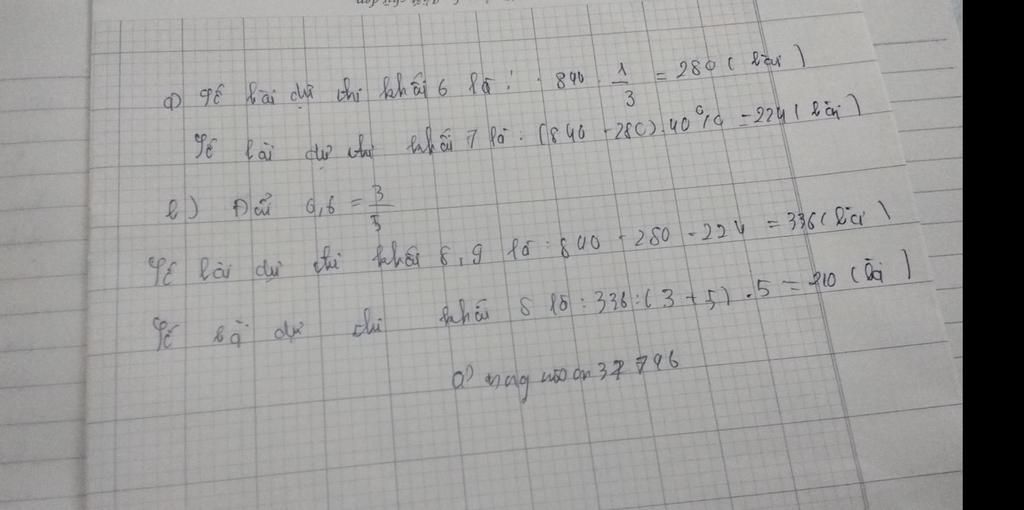 a) Số bài dự thi khối 6 là : 840 . 1/3 = 280 ( bài )
Số bài dự thi khối 7 là : (840 - 280) . 40% = 224 ( bài )
b) Đổi 0,6 = 3/5
Số bài dự thi khối 8, 9 là : 840 - 280 - 224 = 336 ( bài )
Số bài dự thi khối 8 là : 336 : ( 3 + 5 ) . 5 = 210 ( bài )
37796